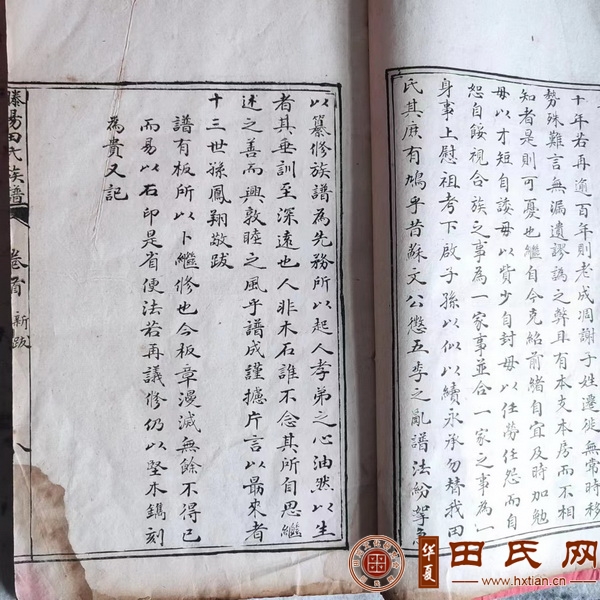 十年若再逾百年則老成凋謝子姓遷徙無常時移
勢殊難言無漏遺謬譌之弊且有本支本房而不相
知者是則可憂也繼自今克紹前緒自宜及時加勉
毋以才短自諉毋以貲少自封毋以任勞任怨而自
恕自餒視合族之事為一家事並合一家之事為一
身事上慰祖考下啟子孫以似以續永承勿替我田
氏其庶有鳩乎昔蘇文公懲五季之亂譜法紛挐
以纂修族譜為先務所以起人孝弟之心油然以生
者其垂訓至深遠也人非木石誰不念其所自思繼
述之善而興敦睦之風乎譜成謹攄片言以勗來者
十三世孫鳳翔敬跋
譜有板所以卜繼修也今板章漫滅無餘不得已
而易以石印是省便法若再議修仍以堅木鐫刻
為貴又記
田氏族譜
卷首
新跋
八
华夏
田氏网
www.hxtian.cn